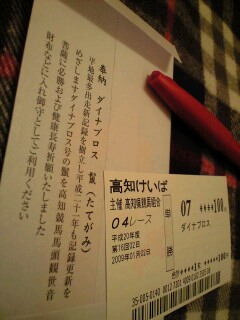 奉納 ダイナブロス 鬣(たてがみ)
平地最多出走新記録を樹立し平成二十一年も記録更新を
めざしますダイナブロス号の鬣を高知競馬馬頭観世音
菩薩に必勝および健康長寿祈願いたしました
財布などに入れ御守としてご利用ください
高知けいば
主催 高知県競馬組合
04レース
平成20年度
第16回02日
2009年01月02日
単勝
07 ****100円
ダイナブロス